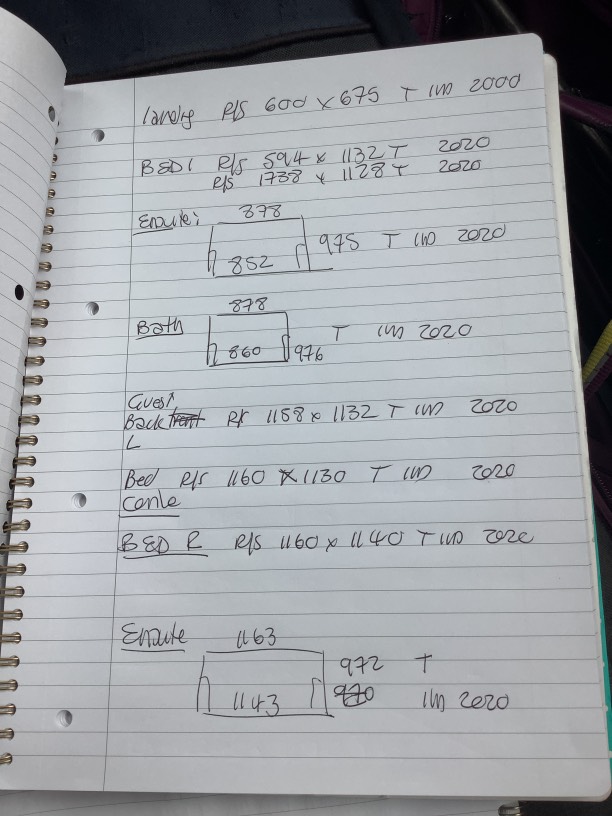 landing R/S 600 x 675 T IM 2000
BED 1 R/S 594 x 1132 T 2020
R/S 1738 x 1128 T 2020
878
Ensuite: 975 T IM 2020
852
878
Bath T IM 2020
860 976
Guest
Back front R/S 1158 x 1132 T IM 2020
L
Bed R/S 1160 x 1130 T IM 2020
Centre
BED R R/S 1160 x 1140 T IM 2020
Ensuite 1163
972 T
1143 970 IM 2020